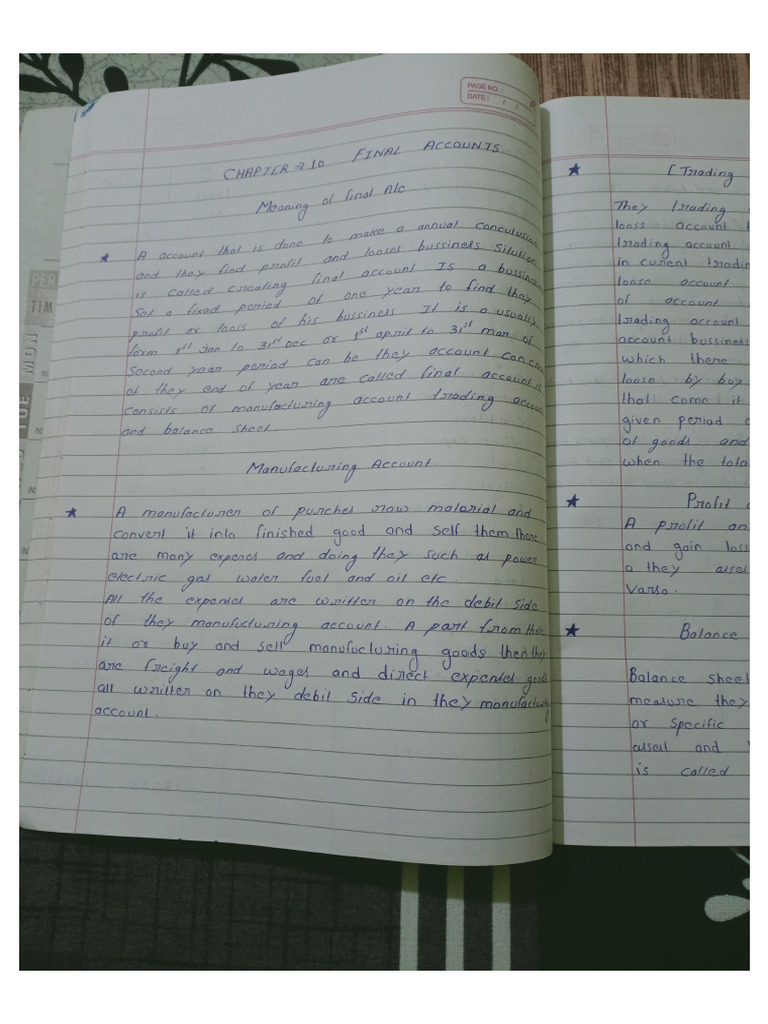 PAGE NO.
DATE: / /
CHAPTER → 10 FINAL ACCOUNTS
Meaning of final A/c
A account that is done to make a annual conculusion
and they find profit and looses bussiness Sitution
is called creating final account Is a bussiness
Set a fixed period of one year to find they
profit or looss of his bussiness It is a usually
form 1st Jan to 31st Dec or 1st april to 31st mar of
Second year period can be they account
of they end of year are called final account it
consists of manufacturing account trading account
and balance sheet.
Manufacturing Account
A manufacturer of purches raw material and
convert it into finished good and self them there
are many expenes and doing they such as power
electric gas water fuel and oil etc.
All the expenses are written on the debit side
of they manufucturing account. A part from there
it or buy and sell manufucturing goods then they
are freight and wages and direct expenses goods
all written on they debit side in they manufacturing
account.
[Trading
They trading
looss account
trading account
in current
loose account
of account
trading account
account
which there
loose by buy
that come it
given period
of goods and
when the
Profit
A profit an
and gain loss
o they
Varsa.
Balance
Balance sheet
measure they
or specific
assest and
is called
PER
TIM
MON
TUE